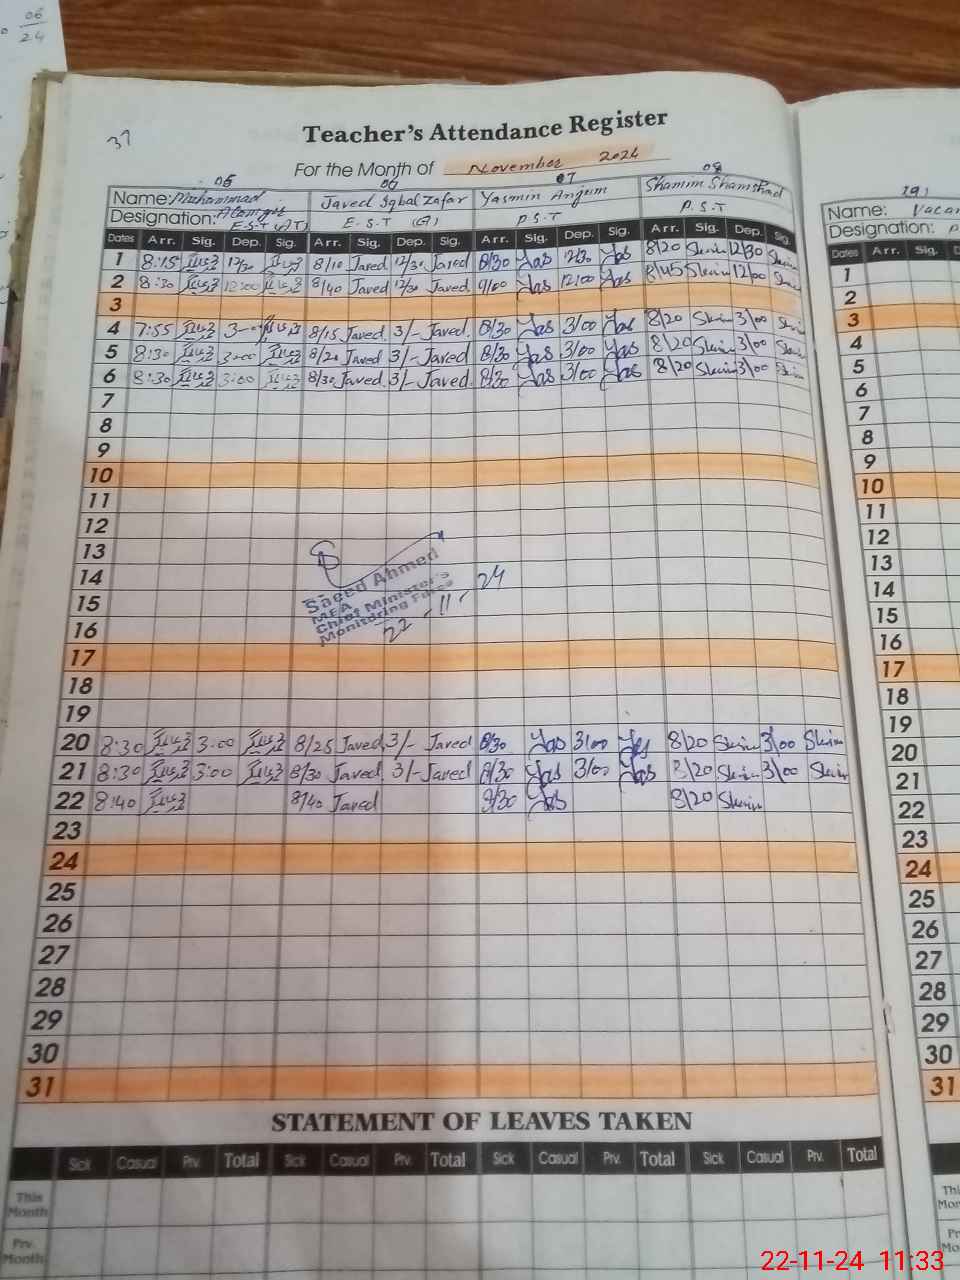 06
24
37
Teacher's Attendance Register
For the Month of November 2024
05 06 07 08
Name: Muhammad Javed Iqbal Zafar Yasmin Anjum Shamim Shamshad
Designation: Alamgir E-S-T (AT) E-S-T (G) P.S.T P.S.T
Dates Arr. Sig. Dep. Sig. Arr. Sig. Dep. Sig. Arr. Sig. Dep. Sig. Arr. Sig. Dep. Sig.
1 8:15 12/30 8/10 Javed 12/30 Javed 8/30 Yas 12/30 Yas 8/20 12/30
2 8:30 12:00 8/40 Javed 12/30 Javed 9/00 Yas 12/00 Yas 8/45 12/00
3
4 7:55 3-00 8/15 Javed 3/- Javed 8/30 Yas 3/00 Yas 8/20 3/00
5 8:30 3:00 8/20 Javed 3/- Javed 8/30 Yas 3/00 Yas 8/20 3/00
6 8:30 3:00 8/30 Javed 3/- Javed 8/30 Yas 3/00 Yas 8/20 3/00
7
8
9
10
11
12
13
14
15
16
Saeed Ahmed
MEA
Chief Minister's
Monitoring Force
22-11-24
17
18
19
20 8:30 3:00 8/25 Javed 3/- Javed 8/30 Yas 3/00 Yas 8/20 3/00
21 8:30 3:00 8/30 Javed 3/- Javed 8/30 Yas 3/00 Yas 8/20 3/00
22 8:40 8/40 Javed 8/30 Yas 8/20
23
24
25
26
27
28
29
30
31
STATEMENT OF LEAVES TAKEN
Sick Casual Prv. Total Sick Casual Prv. Total Sick Casual Prv. Total Sick Casual Prv. Total
This Month
Prv. Month
Name:
Designation:
Dates Arr. Sig.
1
2
3
4
5
6
7
8
9
10
11
12
13
14
15
16
17
18
19
20
21
22
23
24
25
26
27
28
29
30
31
22-11-24 11:33